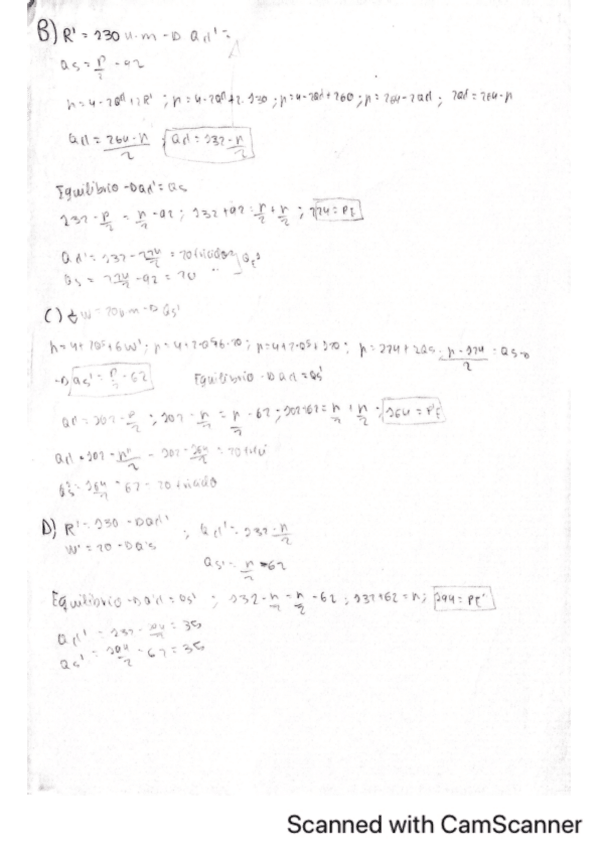 B) R' = 130 u.m → Qd' =
Qs = P/2 - 92
P = 4 - 2Qd + 2R' ; P = 4 - 2Qd + 2.130 ; P = 4 - 2Qd + 260 ; P = 264 - 2Qd ; 2Qd = 264 - P
Qd = 264 - P/2 ; Qd' = 132 - P/2
Equilíbrio → Qd' = Qs
132 - P/2 = P/2 - 92 ; 132 + 92 = P/2 + P/2 ; 224 = PE
Qd' = 132 - 224/2 = 20
Qs = 224/2 - 92 = 20
C) W = 20 u.m → Qs'
P = 4 + 2Qs + 6W' ; P = 4 + 2Qs + 120 ; P = 124 + 2Qs ; P - 124/2 = Qs →
→ Qs' = P/2 - 62 Equilíbrio → Qd = Qs'
Qd = 102 - P/2 ; 102 - P/2 = P/2 - 62 ; 102 + 62 = P/2 + P/2 ; 164 = PE
Qd = 102 - P/2 = 102 - 164/2 = 20
164/2 - 62 = 20
D) R' = 130 → Qd' ; Qd' = 132 - P/2
W' = 20 → Q's Qs' = P/2 - 62
Equilíbrio → Q'd = Qs' ; 132 - P/2 = P/2 - 62 ; 132 + 62 = P ; 194 = PE'
Qd' = 132 - 194/2 = 35
Qs' = 194/2 - 62 = 35
Scanned with CamScanner